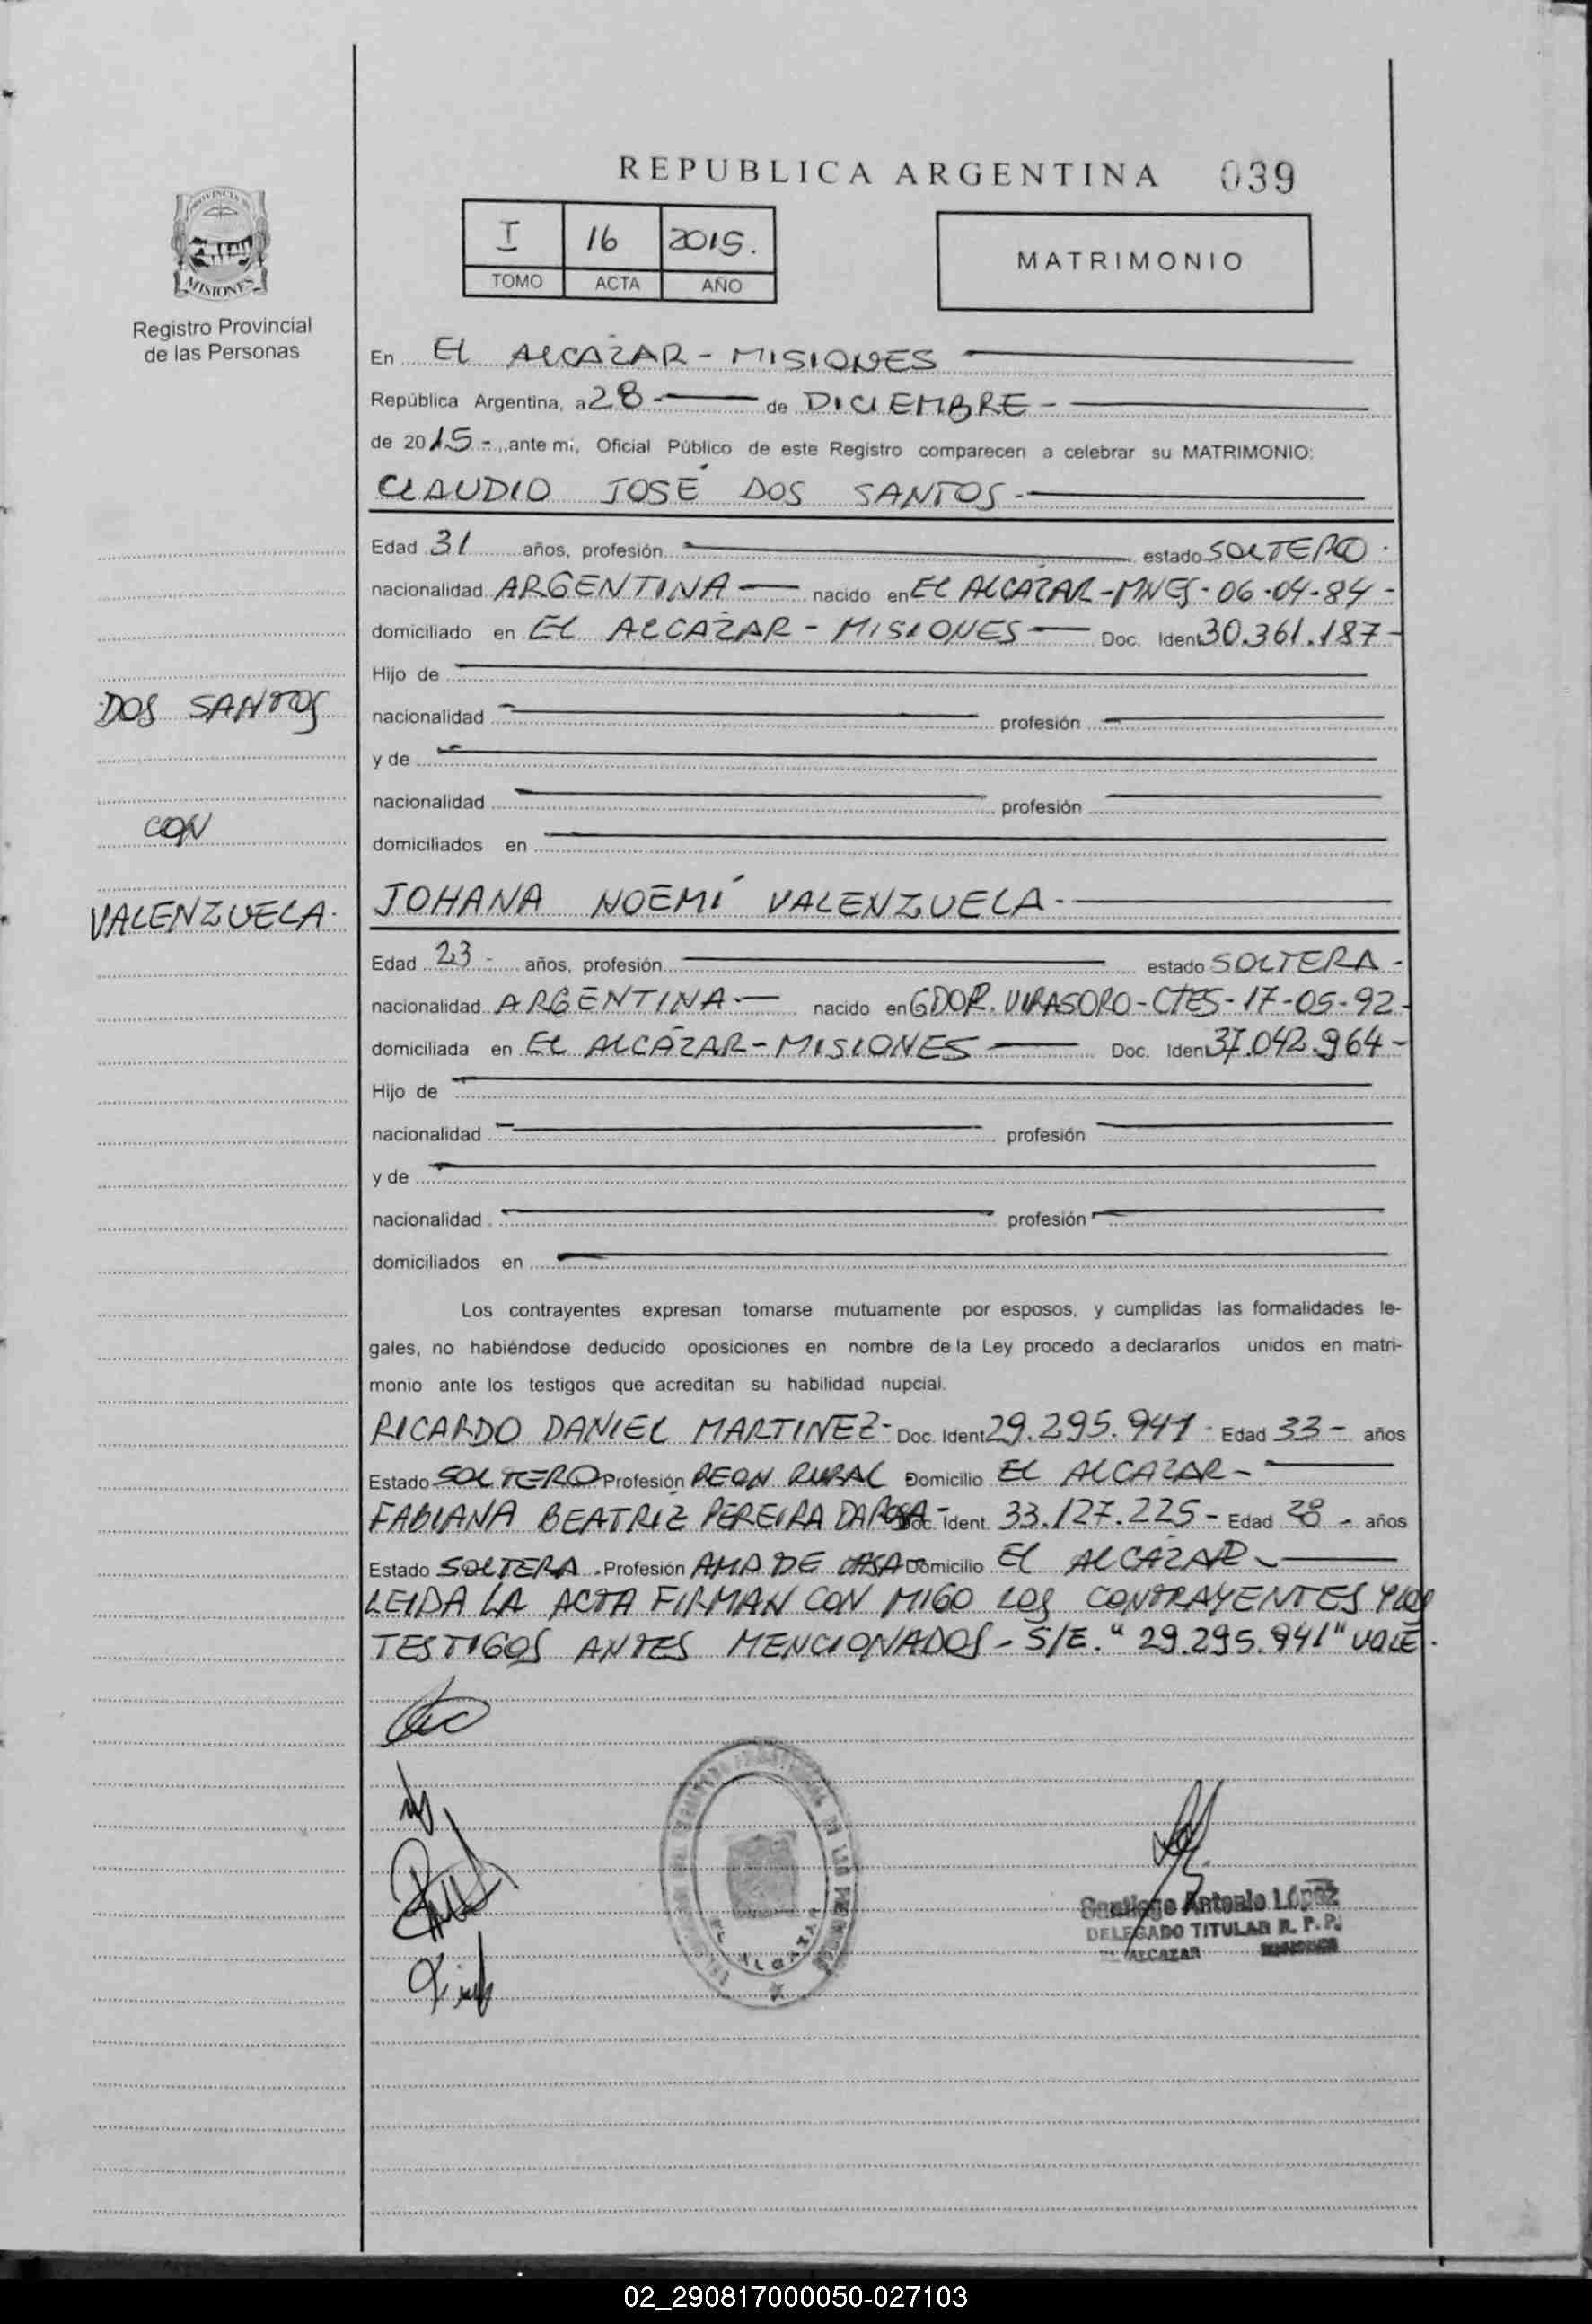 REPUBLICA ARGENTINA 039
I 16 2015.
TOMO ACTA AÑO
MATRIMONIO
MISIONES
Registro Provincial
de las Personas
En EL ALCAZAR - MISIONES
República Argentina, a 28 - de DICIEMBRE -
de 2015 - , ante mi, Oficial Público de este Registro comparecen a celebrar su MATRIMONIO:
CLAUDIO JOSÉ DOS SANTOS -
Edad 31 años, profesión estado SOLTERO .
nacionalidad ARGENTINA nacido en EL ALCAZAR-MNES-06-04-84-
domiciliado en EL ALCAZAR - MISIONES Doc. Ident. 30.361.187-
Hijo de
DOS SANTOS
nacionalidad profesión
y de
nacionalidad profesión
CON
domiciliados en
VALENZUELA.
JOHANA NOEMÍ VALENZUELA -
Edad 23 - años, profesión estado SOLTERA -
nacionalidad ARGENTINA. nacido en GDOR. VIRASORO-CTES-17-05-92-
domiciliada en EL ALCAZAR-MISIONES Doc. Ident. 37.042.964-
Hijo de
nacionalidad profesión
y de
nacionalidad profesión
domiciliados en
Los contrayentes expresan tomarse mutuamente por esposos, y cumplidas las formalidades le-
gales, no habiéndose deducido oposiciones en nombre de la Ley procedo a declararlos unidos en matri-
monio ante los testigos que acreditan su habilidad nupcial.
RICARDO DANIEL MARTINEZ- Doc. Ident 29.295.941 - Edad 33 - años
Estado SOLTERO Profesión PEON RURAL Domicilio EL ALCAZAR -
FABIANA BEATRIZ PEREIRA DA ROSA- Doc. Ident. 33.127.225 - Edad 28 - años
Estado SOLTERA . Profesión AMA DE CASA Domicilio EL ALCAZAR -
LEIDA LA ACTA FIRMAN CON MIGO LOS CONTRAYENTES Y LOS
TESTIGOS ANTES MENCIONADOS - S/E. "29.295.941" VALE.
Santiago Antonio López
DELEGADO TITULAR R. P. P.
EL ALCAZAR MISIONES
02_290817000050-027103